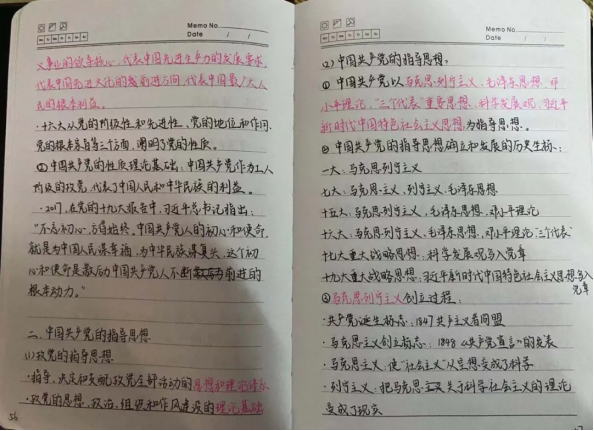 Memo No.
Date / /
义事业的领导核心,代表中国先进生产力的发展要求,
代表中国先进文化的前进方向,代表中国最广大人
民的根本利益。
·十六大从党的阶级性和先进性、党的地位和作用、
党的根本宗旨等三个方面,阐明了党的性质。
②中国共产党的性质理论基础:中国共产党作为工人
阶级的政党,代表了中国人民和中华民族的利益。
·2017,在党的十九大报告中,习近平总书记指出:
“不忘初心,方得始终。中国共产党人的初心和使命,
就是为中国人民谋幸福,为中华民族谋复兴。这个初
心和使命是激励中国共产党人不断前进的
根本动力。”
二、中国共产党的指导思想
(1)政党的指导思想
·指导、决定和支配政党全部活动的思想和理论体系
·政党的思想、政治、组织和作风建设的理论基础
56
Memo No.
Date / /
(2)中国共产党的指导思想。
①中国共产党以马克思列宁主义、毛泽东思想、邓
小平理论、“三个代表”重要思想、科学发展观、习近平
新时代中国特色社会主义思想为指导思想。
②中国共产党的指导思想确立和发展的历史坐标:
一大:马克思列宁主义
七大:马克思主义、列宁主义、毛泽东思想
十五大:马克思列宁主义、毛泽东思想、邓小平理论
十六大:马克思列宁主义、毛泽东思想、邓小平理论“三个代表”
十七大重大战略思想:科学发展观写入党章
十九大重大战略思想:习近平新时代中国特色社会主义思想写入
党章
③马克思列宁主义创立过程:
·共产党诞生标志:1847共产主义者同盟
·马克思主义创立标志:1848《共产党宣言》的发表
·马克思主义:使“社会主义”从空想变成了科学
·列宁主义:把马克思主义关于科学社会主义的理论
变成了现实